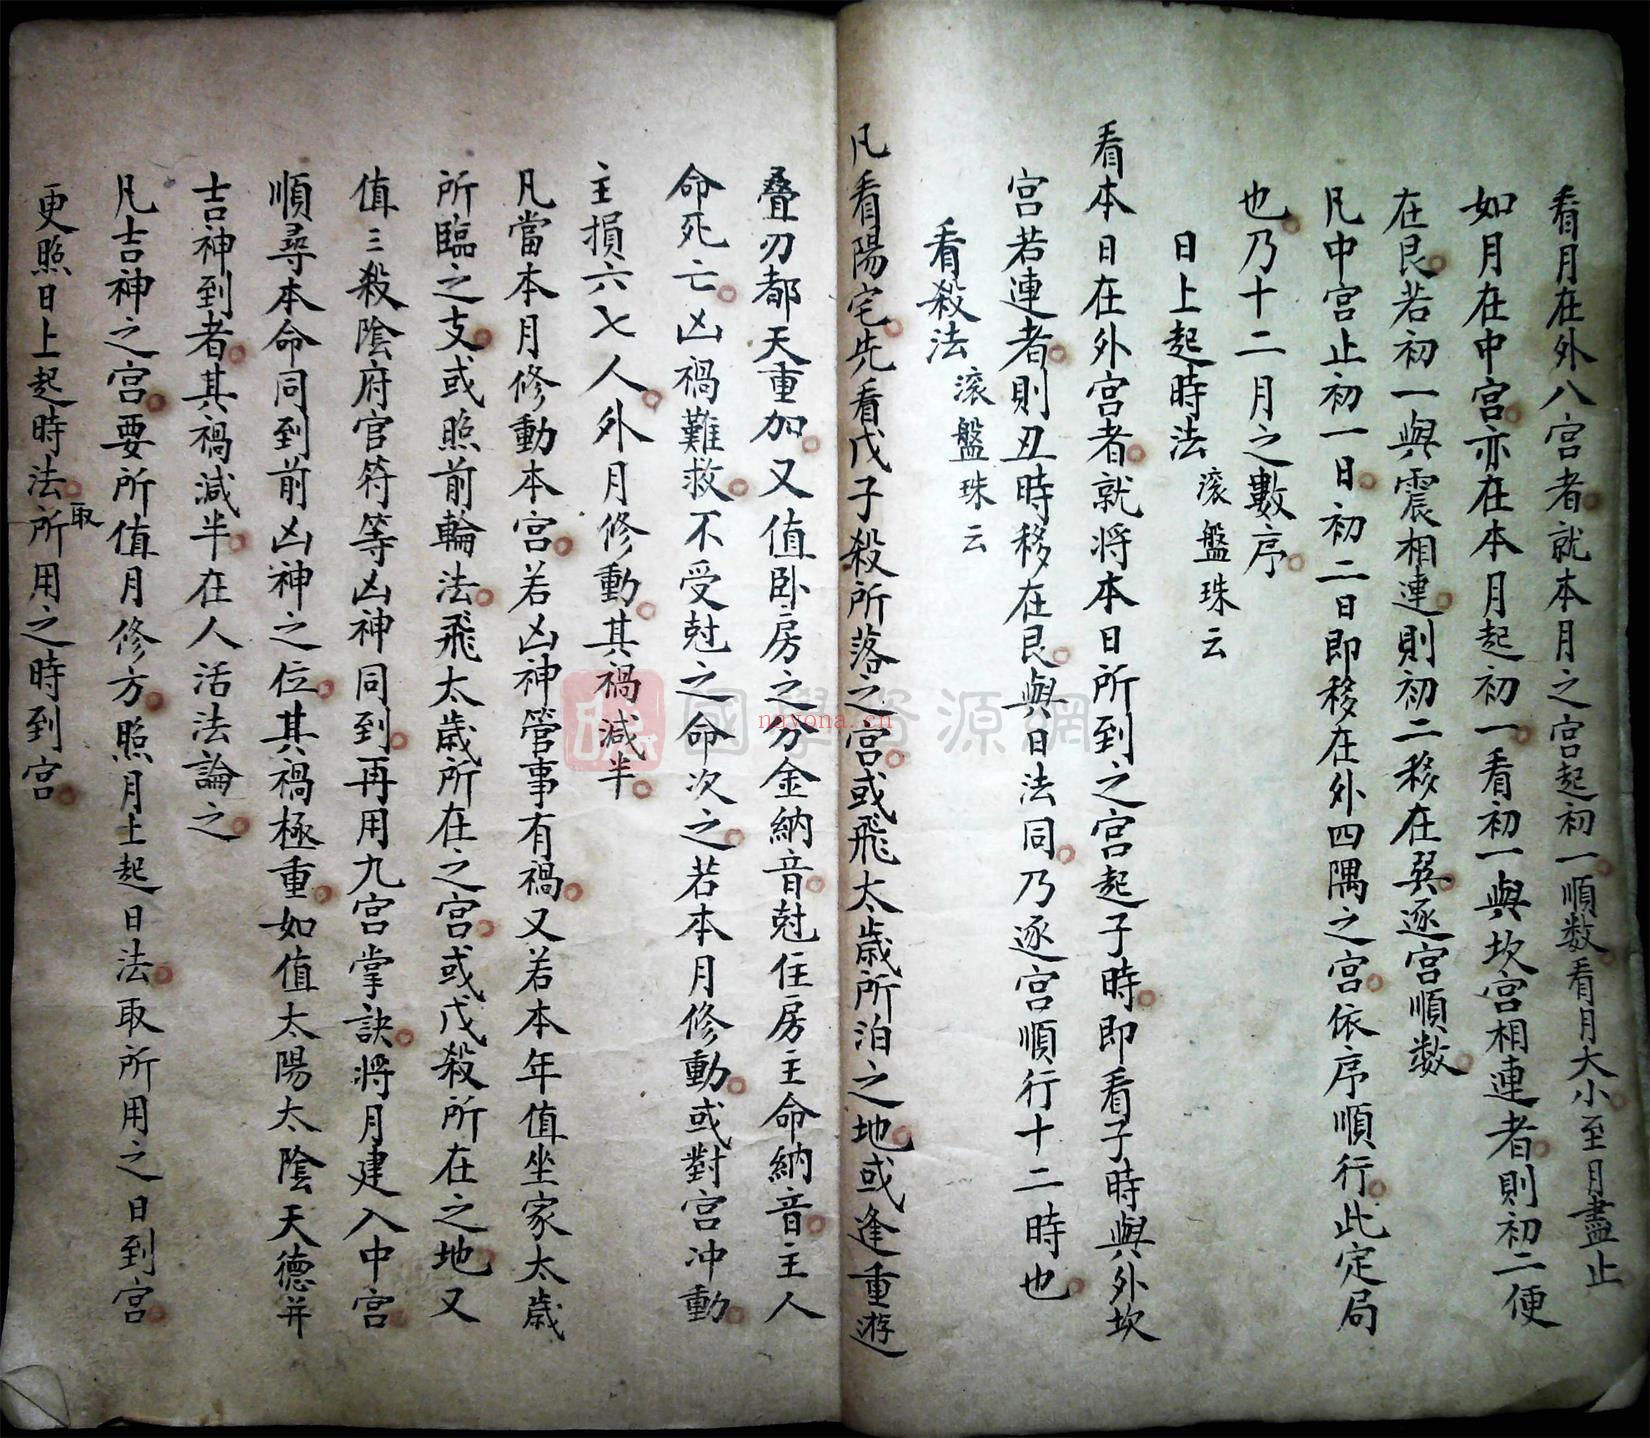 看月在外八宮者就本月之宮起初一順数看月大小至月盡止
如月在中宮亦在本月起初一看初一與坎宮相連者則初二便
在艮若初一與震相連則初二移在巽逐宮順数
凡中宮止初一日初二日即移在外四隅之宮依序順行此定局
也乃十二月之數序
日上起時法 滚盤珠云
看本日在外宮者就將本日所到之宮起子時即看子時與外坎
宮若連者則丑時移在艮與日法同乃逐宮順行十二時也
看殺法 滚盤珠云
凡看陽宅先看戊子殺所落之宮或飛太歲所泊之地或逢重遊
叠刃都天重加又值卧房之分金納音尅住房主命納音主人
命死亡凶禍難救不受尅之命次之若本月修動或對宮冲動
主損六七人外月修動其禍減半
凡當本月修動本宮若凶神管事有禍又若本年值坐家太歲
所臨之支或照前輪法飛太歲所在之宮或戊殺所在之地又
值三殺陰府官符等凶神同到再用九宮掌訣將月建入中宮
順尋本命同到前凶神之位其禍極重如值太陽太陰天德并
吉神到者其禍減半在人活法論之
凡吉神之宮要所值月修方照月上起日法取所用之日到宮
更照日上起時法取所用之時到宮
國學資源網
nayona.cn